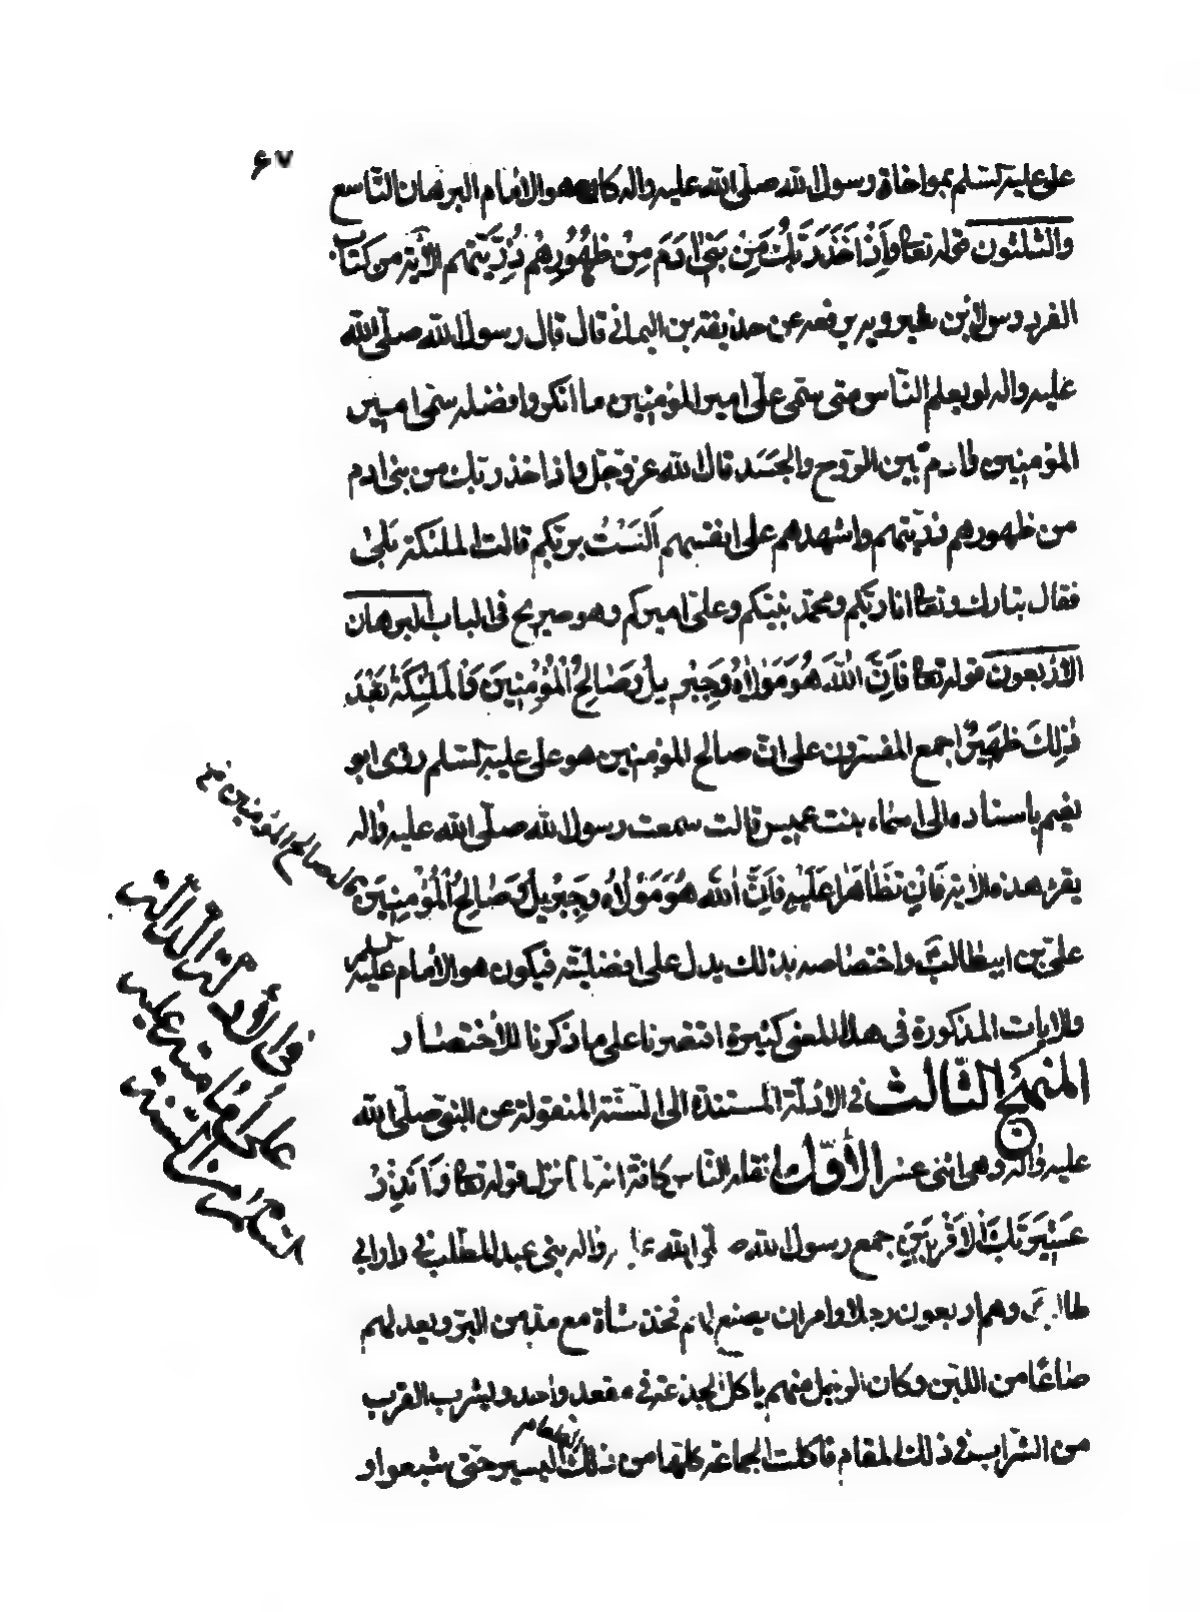 ٦٧
على عليه السلم بمواخاة رسول الله صلى الله عليه واله كان هو الامام البرهان التاسع
والثلثون قوله تعالى وَاِذْ اَخَذَ رَبُّكَ مِنْ بَنِي ادَمَ مِنْ ظُهُورِهِمْ ذُرِّيَّتَهُم الاية من كتاب
الفردوس لابن يرفعه عن حذيفة بن اليماني قال قال رسول الله صلى الله
عليه واله لو يعلم الناس متى سمى على امير المؤمنين ما انكروا فضله سمى امير
المؤمنين وادم بين الروح والجسد قال الله عز وجل واذ اخذ ربك من بنى ادم
من ظهورهم ذريتهم واشهدهم على انفسهم اَلَسْتُ بربكم قالت الملئكة بَلىٰ
فقال تبارك وتعالى انا ربكم ومحمد نبيكم وعلى اميركم وهو صريح فى الباب البرهان
الاربعون قوله تعالى فَاِنَّ اللهَ هُوَ مَوْلاهُ وَجِبْرِيلُ وَصَالِحُ الْمُؤْمِنِينَ وَالْمَلئِكَةُ بَعْدَ
ذٰلِكَ ظَهِيرٌ اجمع المفسرون على ان صالح المؤمنين هو على عليه السلم روى ابو
نعيم باسناده الى اسماء بنت عميس قالت سمعت رسول الله صلى الله عليه واله
يقرء هذه الاية فَاِنْ تَظَاهَرا عَلَيْهِ فَاِنَّ اللهَ هُوَ مَوْلاهُ وَجِبْرِيلُ وَصَالِحُ الْمُؤْمِنِينَ
قال صالح المؤمنين
على بن ابيطالب واختصاصه بذلك يدل على افضليته فيكون هو الامام عليه السلم
والايات المذكورة فى هذا المعنى كثيرة اقتصرنا على ما ذكرنا للاختصار
المنهج الثالث فى الادلة المستندة الى السنة المنقولة عن النبى صلى الله
عليه واله وهى اثنى عشر الأوّل ما نقله الناس كافة انه لما نزل قوله تعالى وَاَنْذِرْ
عَشِيرَتَكَ الْاَقْرَبِينَ جمع رسول الله صلى الله عليه واله بنى عبد المطلب فى دار ابى
طالب وهم اربعون رجلا وامر ان يصنع لهم فخذ شاة مع مد من البر ويعد لهم
صاعًا من اللبن وكان الرجل منهم ياكل الجذعة فى مقعد واحد ويشرب الفرق
من الشراب فى ذلك المقام فاكلت الجماعة كلها من ذلك الطعام اليسير حتى شبعوا و
فى الأدلة الدالة
على أمامته عليه
السلم من السنة